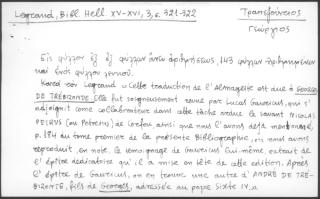 Legrand, Bibl. Hell. XV-XVI, 3, σ. 321-322
Τραπεζούντιος
Γεώργιος
Εἰς φύλλον ἐξ ἓξ φύλλων ἄνευ ἀριθμήσεως, 143 φύλλων ἠριθμημένων
καὶ ἑνὸς φύλλου λευκοῦ.
Κατὰ τὸν Legrand: «Cette traduction de l'Almageste est due à GEORGES
DE TRÉBIZONDE. Elle fut soigneusement revue par Lucas Gauricus, qui s'
adjoignit comme collaborateur dans cette tâche ardue le savant NICOLAS
PETRUS (ou Petreius) de Corfou ainsi que nous l'avons déjà mentionné,
p. 184 du tome premier de la présente Bibliographie, où nous avons
reproduit, en note, le témoignage de Gauricus lui-même, extrait de
l'épître dédicatoire qu'il a mise en tête de cette édition. Après
l'épître de Gauricus, on en trouve une autre d'ANDRÉ DE TRÉ-
BIZONDE, fils de Georges, adressée au pape Sixte IV.»